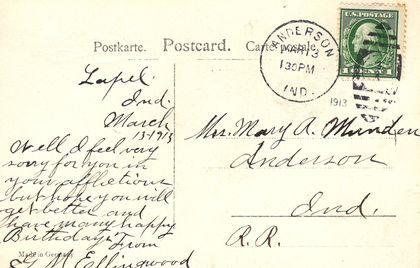 Postkarte. Postcard. Carte postale.
ANDERSON
MAR 13
1 30 PM
IND.
U.S. POSTAGE
1913
Lapel,
Ind.
March
13-1913
Well I feel very
sorry for you in
your affliction
but hope you will
get better and
have many happy
Birthdays From
G M Ellingwood
Made in Germany
Mrs. Mary A. Munden
Anderson
Ind.
R. R.